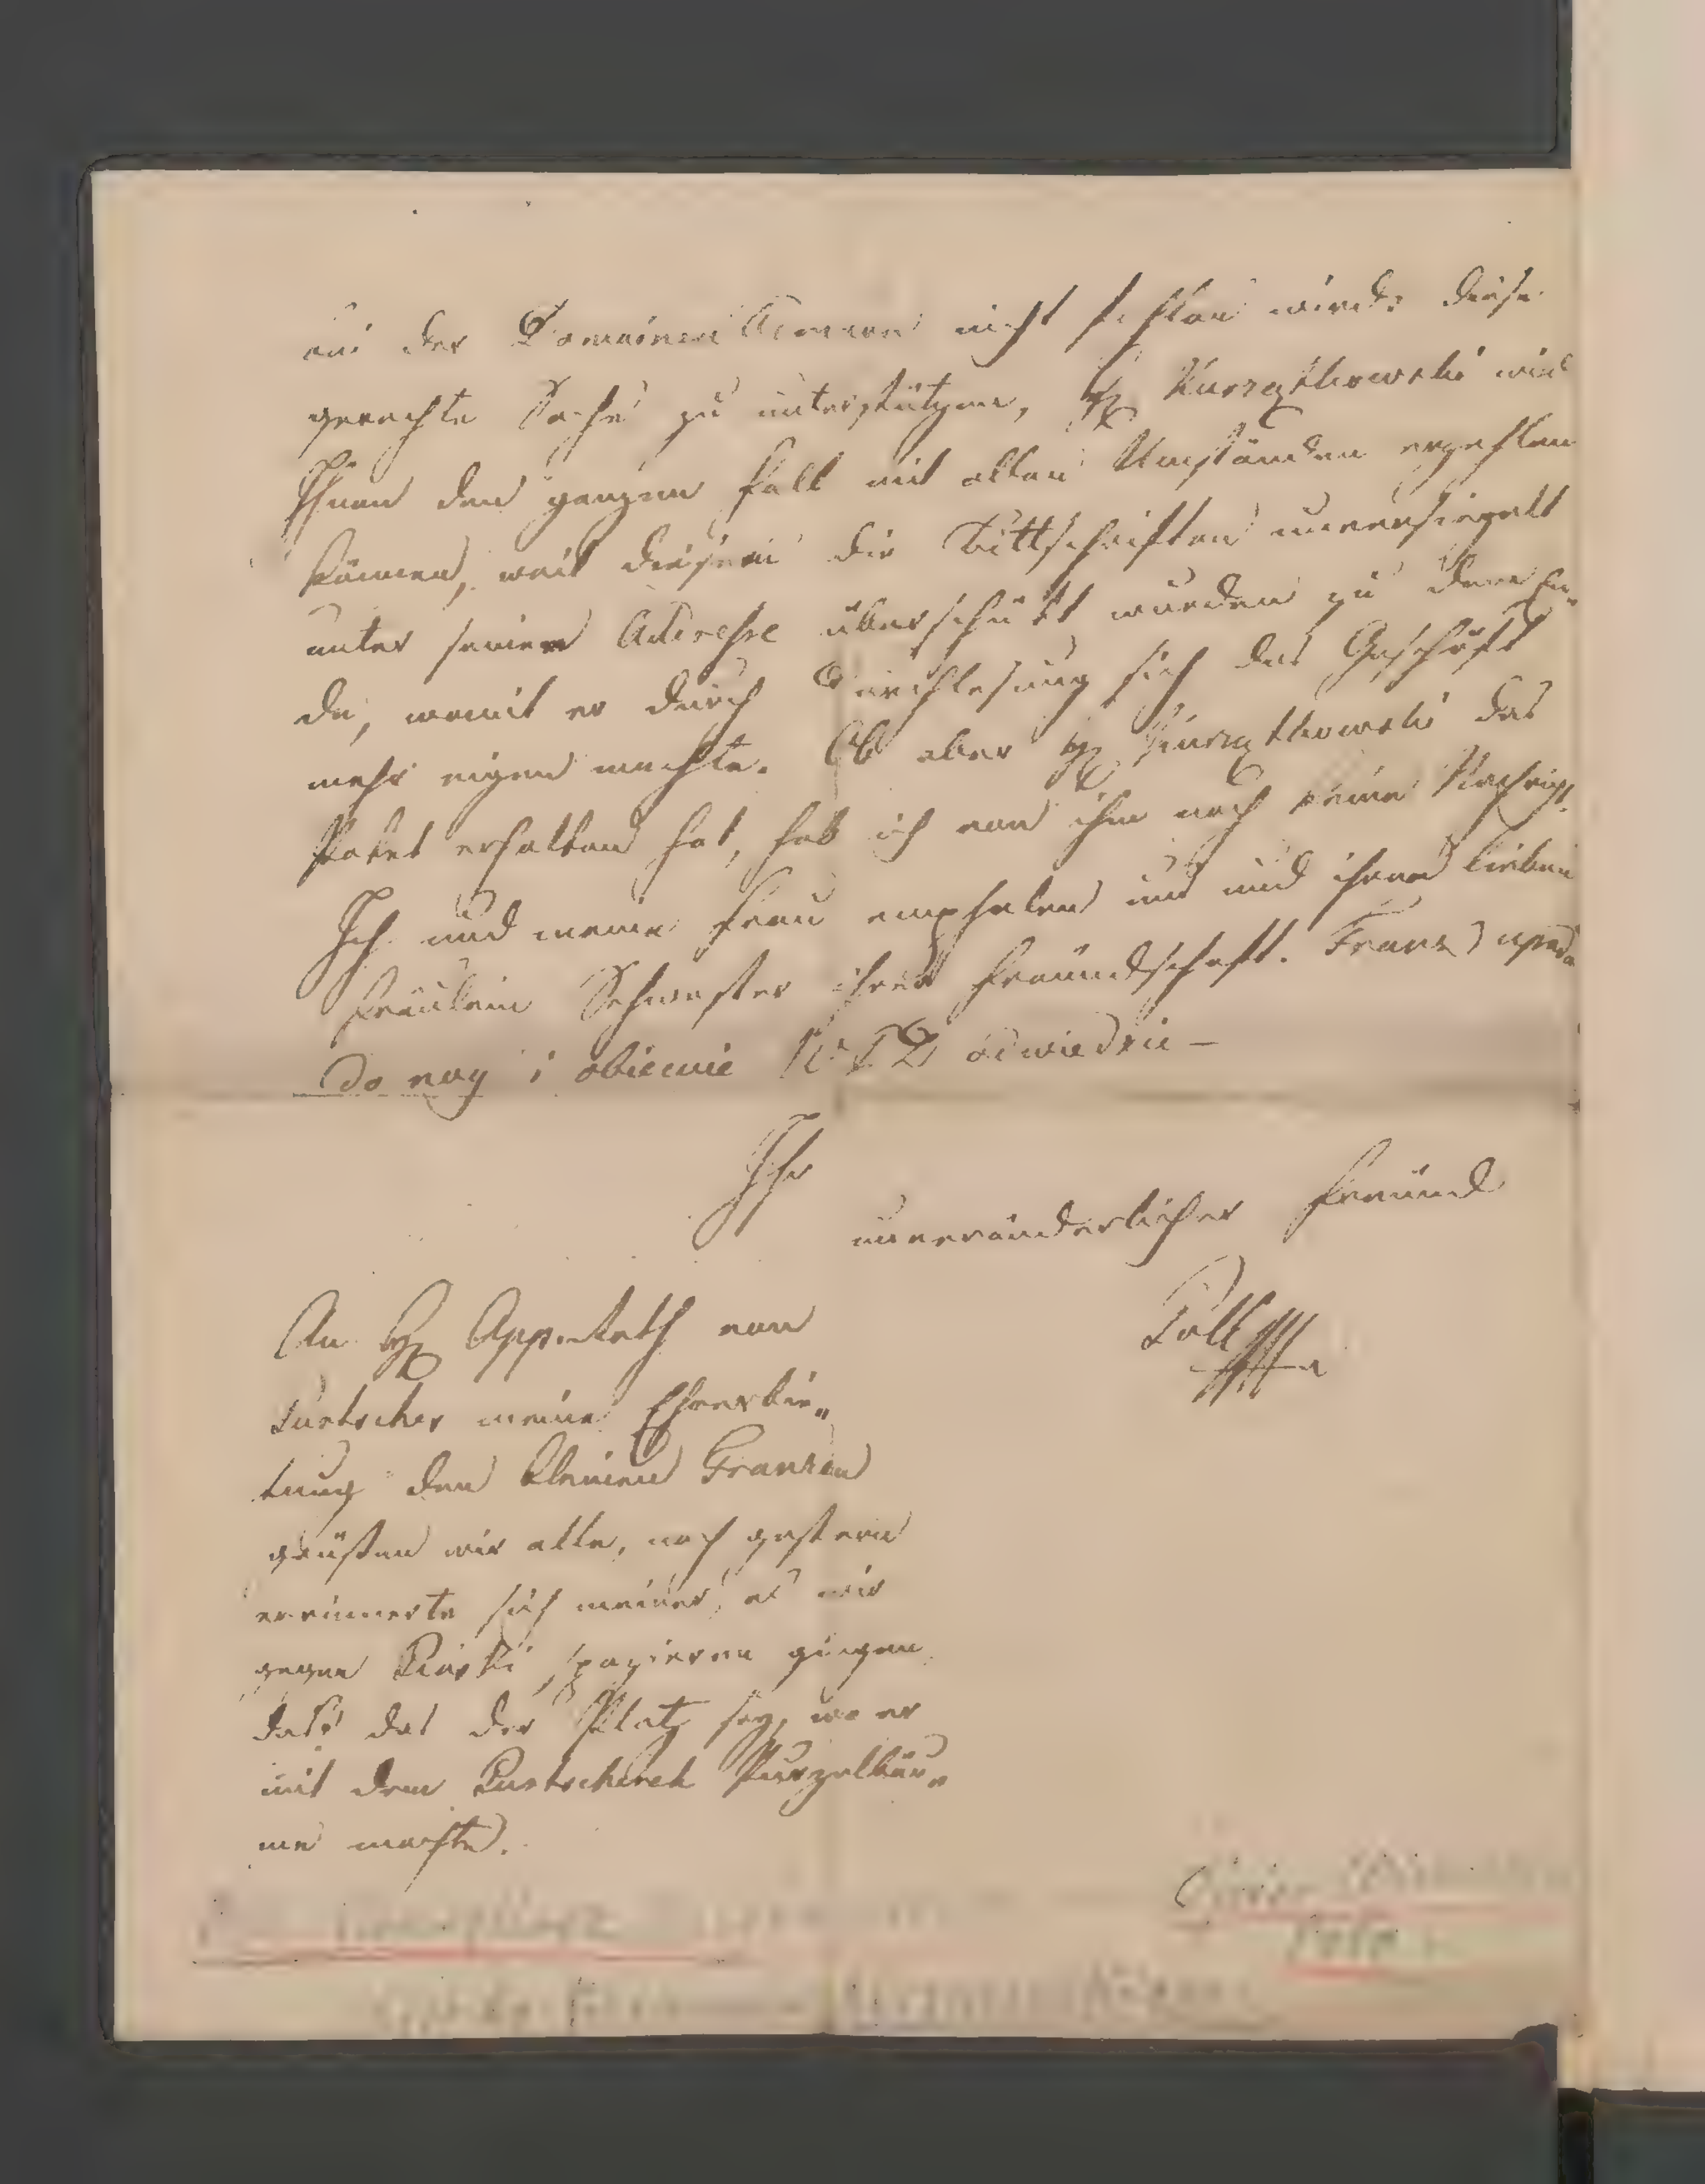 der Domainen nicht fehlen wird: diese
gerechte Sache zu unterstützen, H. Kurzątkowski wird
Ihnen den ganzen Fall mit allen Umständen erzehlen
können, weil diesem die Bittschriften unversiegelt
unter seiner Adresse überschikt wurden zu dem En„
de, womit er durch Durchlesung sich das Geschäft
mehr eigen machte. Ob aber H. Kurzątkowski das
Paket erhalten hat, hab ich von ihm noch keine Nachricht.
Ich und meine Frau empfehlen uns und ihrer lieben
Fräulein Schwester ihrer Freundschaft. Franz upada
do nog i obiecuie odwiedzic –
Ihr
unveränderlicher Freund
An H. App. Rath von
meine Ehrerbie„
tung den kleinen Franzen
grüßen wir alle, noch gestern
errinnerte sich meiner, als wir
gegen spazieren giengen
daß das der Platz sey, wo er
mit dem Purzelbäu„
me machte.